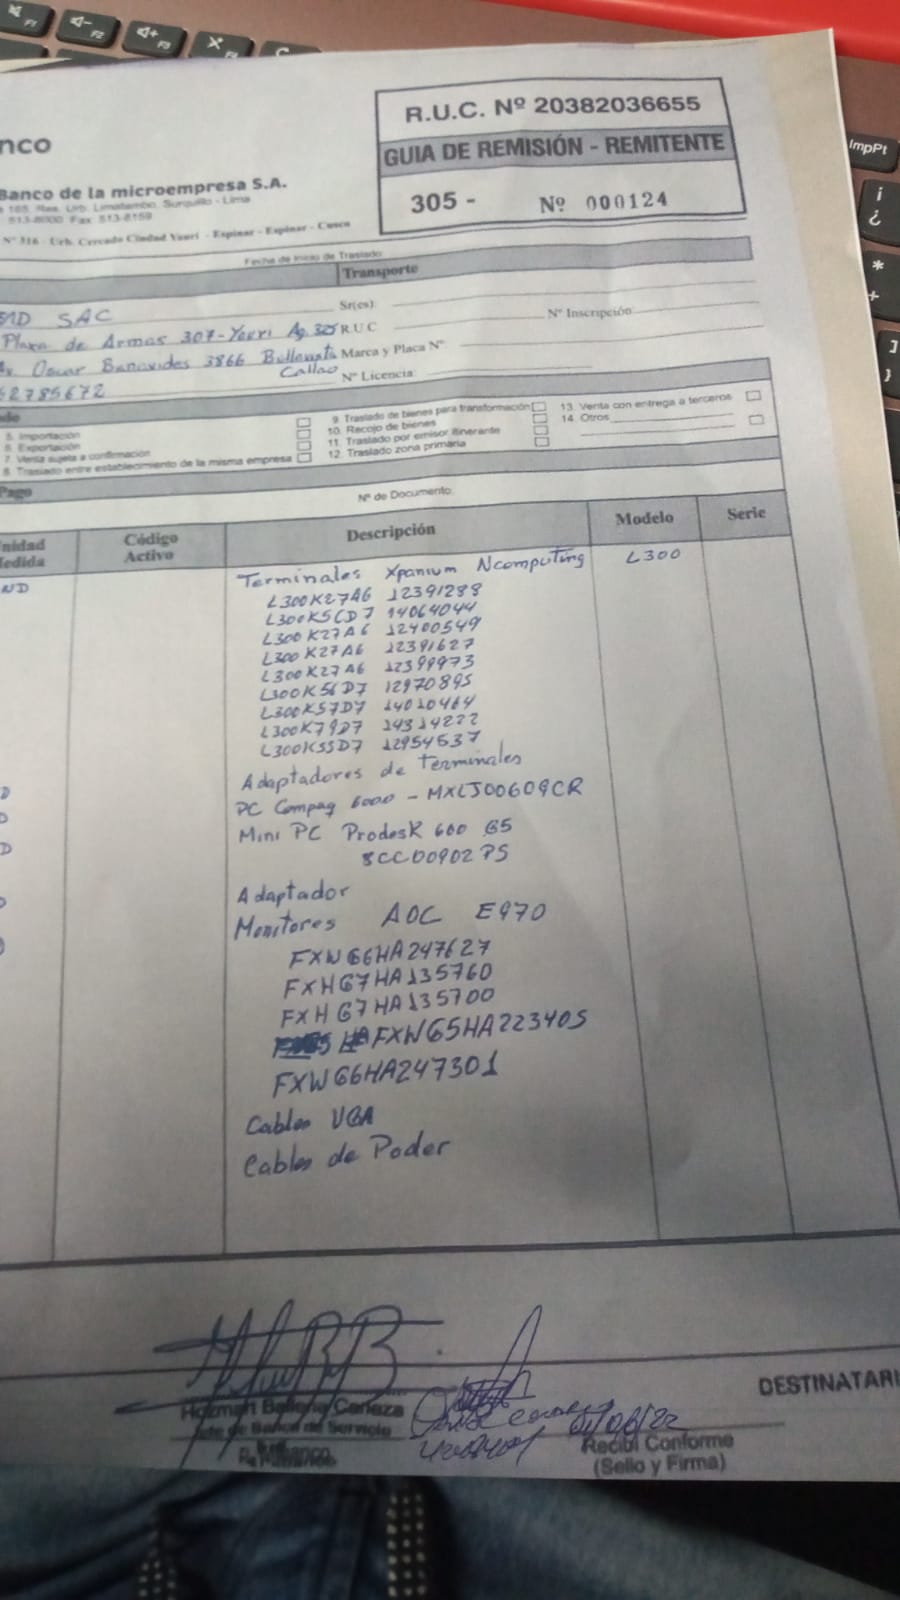 nco
Banco de la microempresa S.A.
165, Res. Urb. Limatambo, Surquillo - Lima
513-8000 Fax 513-8159
Nº 316 - Urb. Cercado Ciudad Yauri - Espinar - Espinar - Cusco
R.U.C. Nº 20382036655
GUIA DE REMISIÓN - REMITENTE
305 - Nº 000124
Fecha de Inicio de Traslado:
Transporte
SAC
Sr(es):
Plaza de Armas 307-Yauri Ag. 325
R.U.C
Nº Inscripción:
Oscar Benavides 3866 Bellavista
Callao
Marca y Placa Nº
62785672
Nº Licencia:
5. Importación
6. Exportación
7. Venta sujeta a confirmación
8. Traslado entre establecimiento de la misma empresa
9. Traslado de bienes para transformación
10. Recojo de bienes
11. Traslado por emisor itinerante
12. Traslado zona primaria
13. Venta con entrega a terceros
14. Otros
Pago
Nº de Documento:
Unidad Medida
Código Activo
Descripción
Modelo
Serie
ND
Terminales Xpanium Ncomputing L300
L300K27A6 12391288
L300K5CD7 14064044
L300K27A6 12400549
L300K27A6 12391627
L300K27A6 12399973
L300K56D7 12970895
L300K57D7 14010464
L300K79D7 14314222
L300K55D7 12954537
Adaptadores de Terminales
PC Compaq 6000 - MXLJ00609CR
Mini PC Prodesk 600 G5
8CC00902PS
Adaptador
Monitores AOC E970
FXWG6HA247627
FXHG7HA135760
FXHG7HA135700
FXWG5HA223405
FXWG6HA247301
Cables VGA
Cables de Poder
DESTINATARI
Jefe de Banca de Servicio
Recibí Conforme
(Sello y Firma)
F1
F2
F3
ImpPt